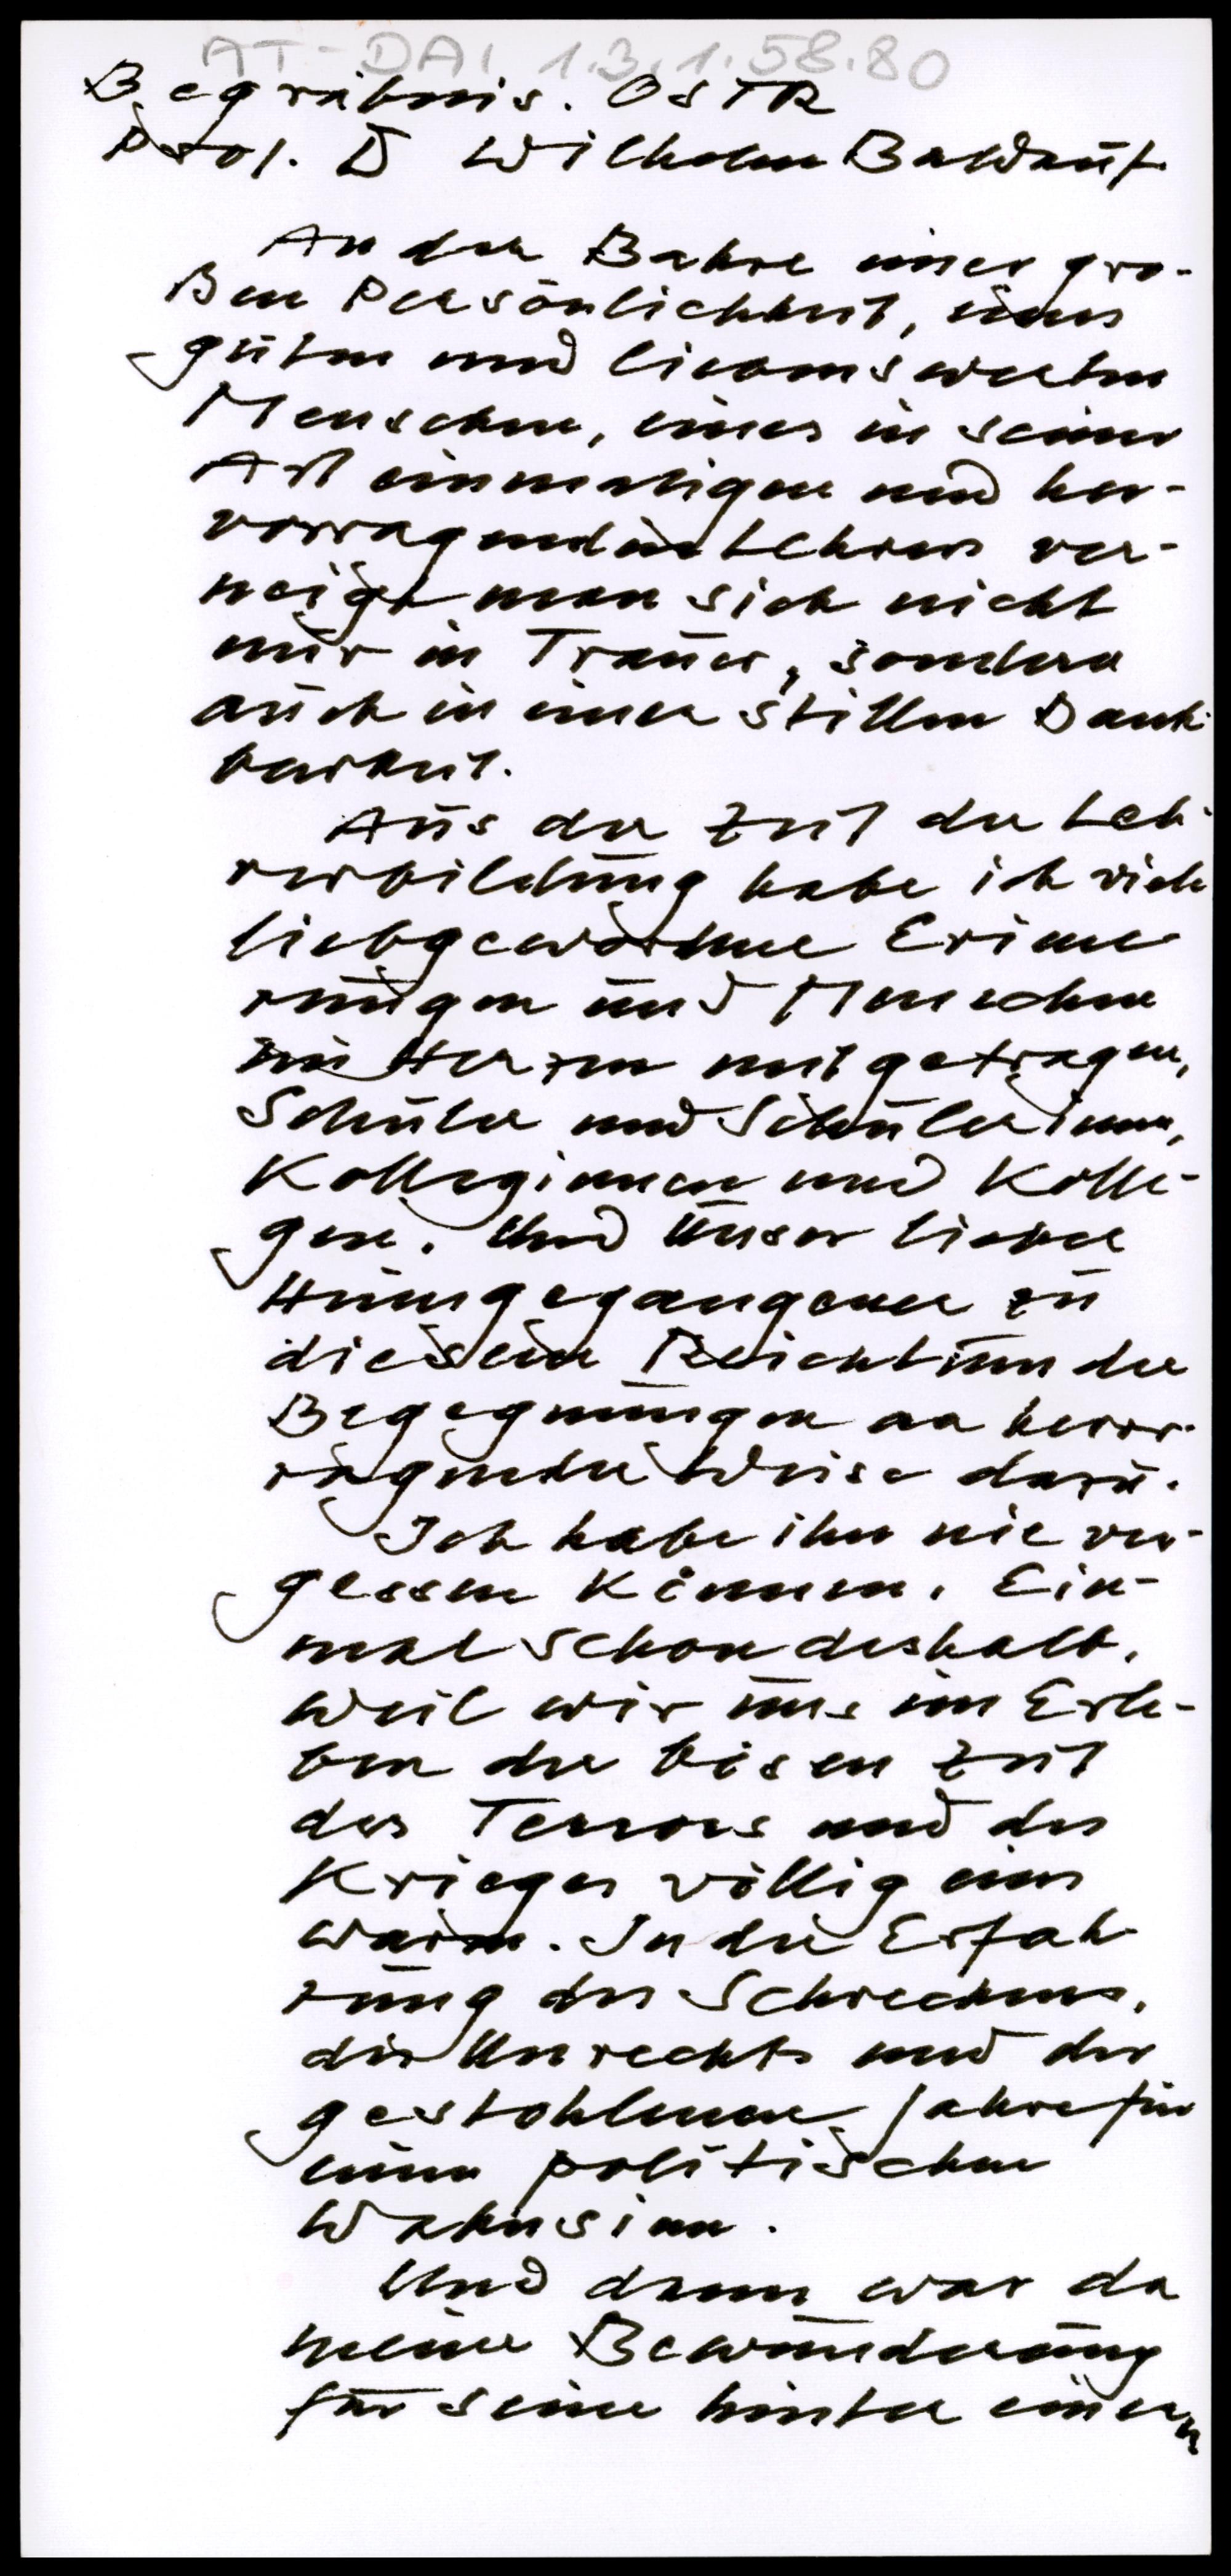 AT-DAI 1.3.1.58.80
Begräbnis. OSTR
Prof. D Wilhelm Baldauf
An der Bahre einer gro-
ßen Persönlichkeit, eines
guten und liebenswerten
Menschen, eines in seiner
Art einmaligen und her-
vorragenden Lehrers ver-
neigt man sich nicht
nur in Trauer, sondern
auch in einer stillen Dank-
barkeit.
Aus der Zeit der Leh-
rerbildung habe ich viele
liebgewordene Erinne
rungen und Menschen
im Herzen mitgetragen,
Schüler und Schülerinnen,
Kolleginnen und Kolle-
gen. Und unser lieber
Heimgegangener zu
diesem Reichtum der
Begegnungen in hervor-
ragender Weise dazu.
Ich habe ihn nie ver-
gessen können. Ein-
mal schon deshalb,
weil wir uns im Erle-
ben der bösen Zeit
des Terrors und des
Krieges völlig eins
waren. In der Erfah
rung des Schreckens,
des Unrechts und der
gestohlenen Jahre für
einen politischen
Wahnsinn.
Und dann war da
meine Bewunderung
für seine hinter einem